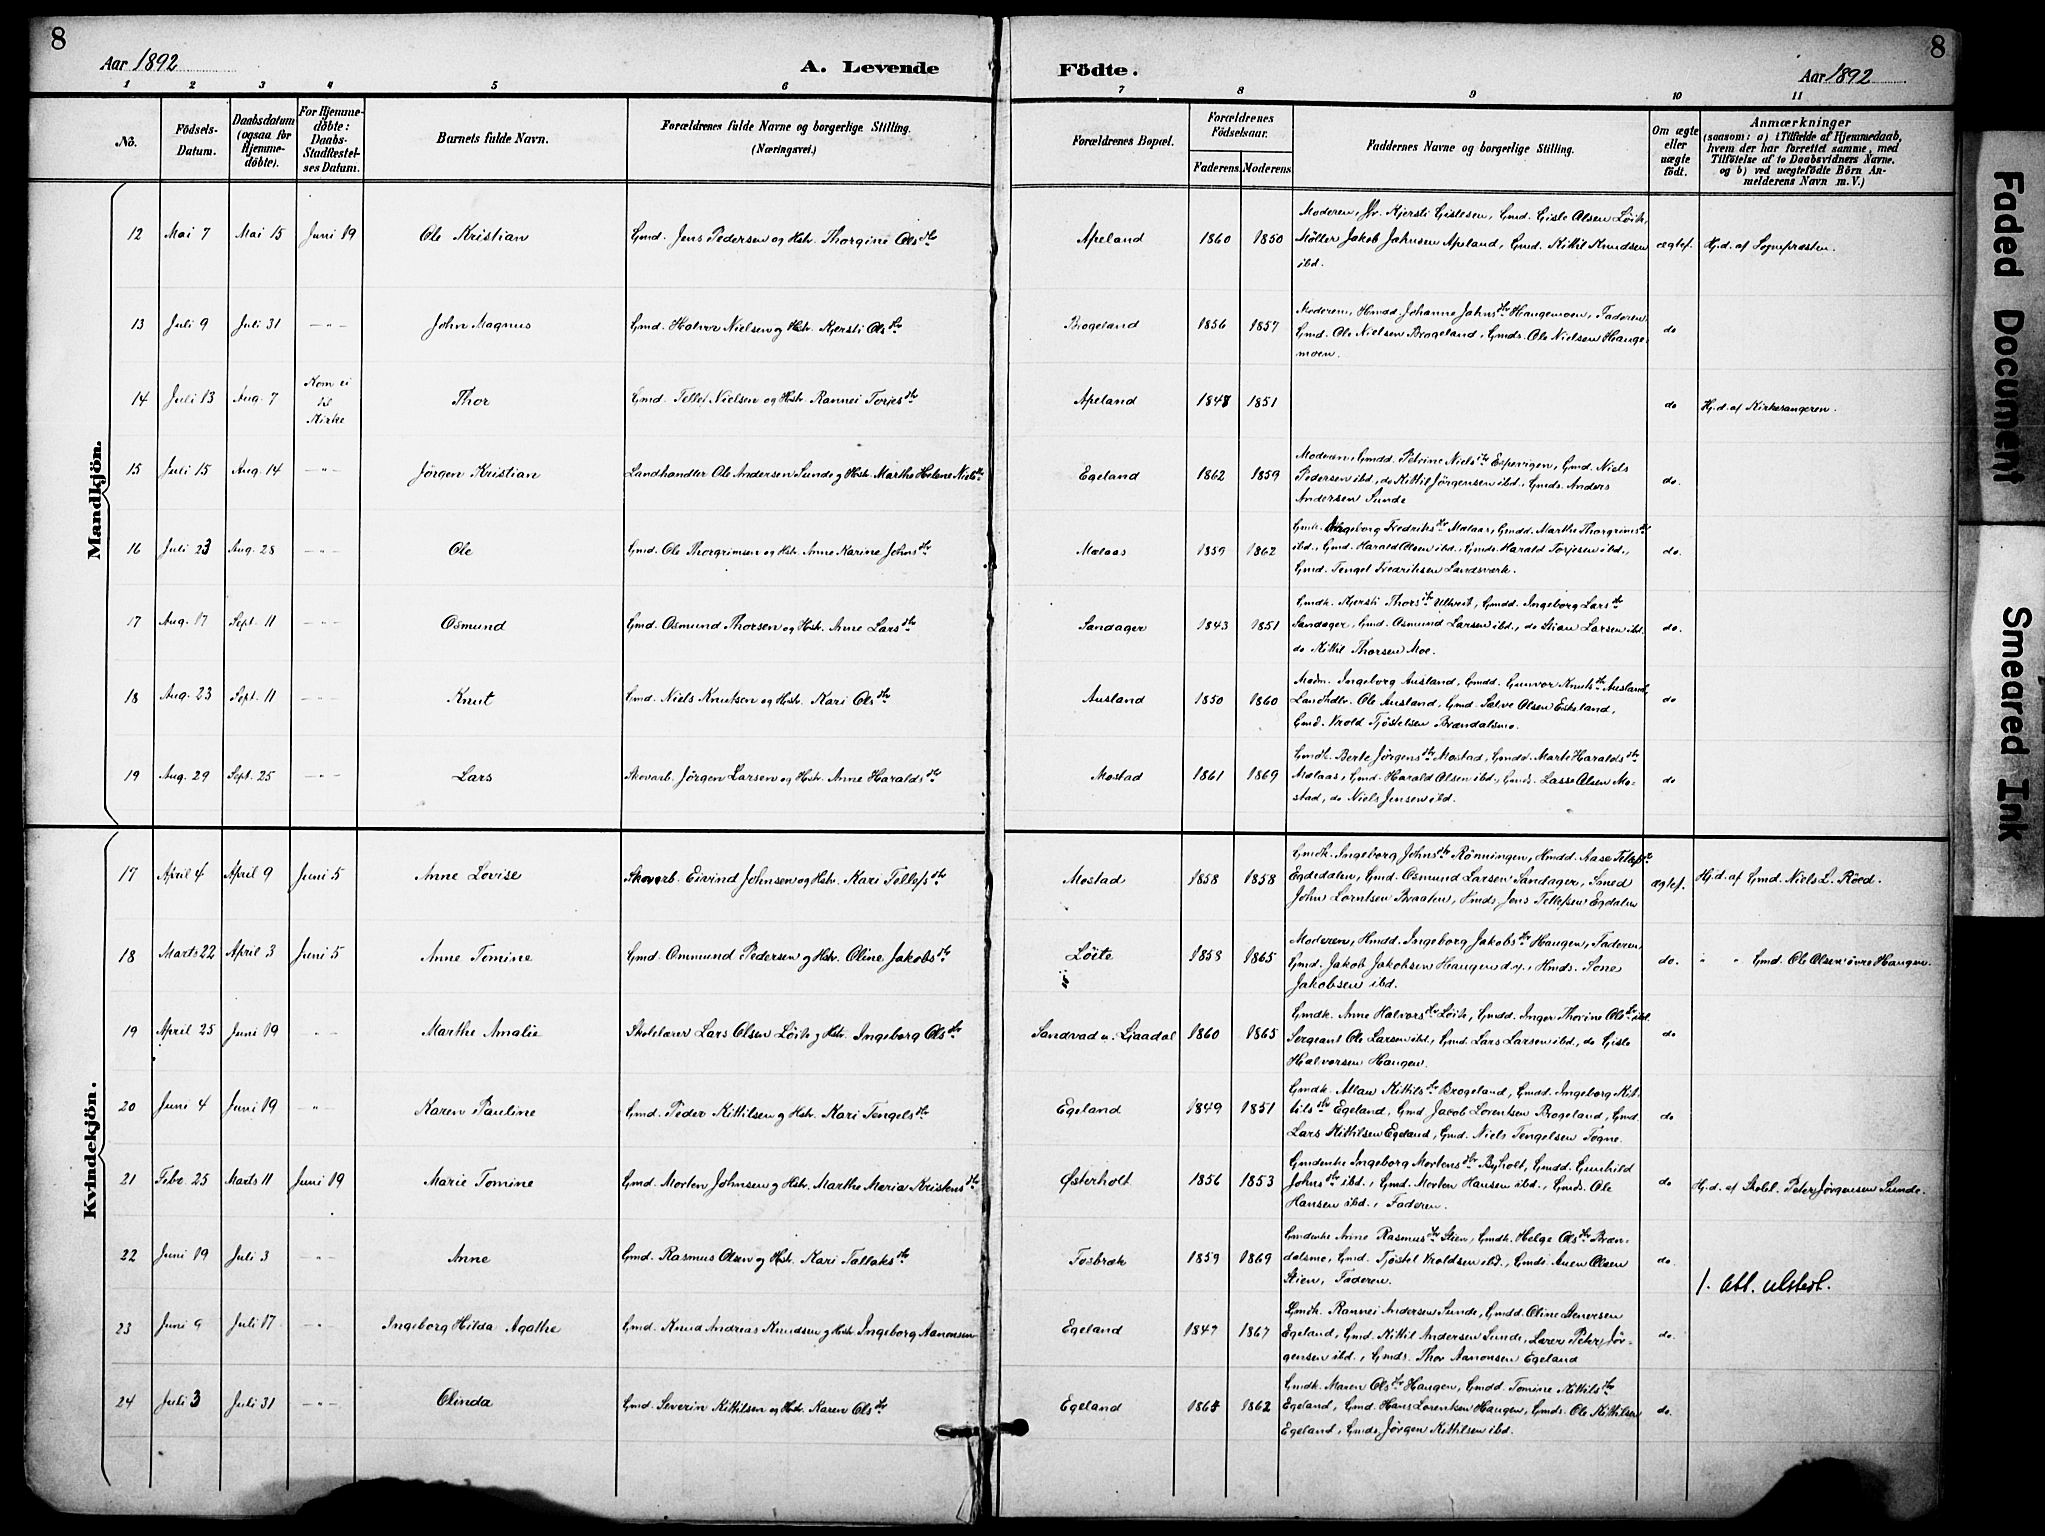 8
Aar 1892
A. Levende Födte.
Aar 1892
8
1 2 3 4 5 6 7 8 9 10 11
No.
Födsels-Datum.
Daabsdatum (ogsaa for Hjemmedöbte).
For Hjemmedöbte: Daabs-Stadfæstelses Datum.
Barnets fulde Navn.
Forældrenes fulde Navne og borgerlige Stilling.
(Næringsvei.)
Forældrenes Bopæl.
Forældrenes Födselsaar.
Faderens. Moderens.
Faddernes Navne og borgerlige Stilling.
Om ægte eller uægte födt.
Anmærkninger
(saasom: a) i Tilfælde af Hjemmedaab, hvem der har forrettet samme, med Tilföielse af to Daabsvidners Navne. og b) ved uægtefödte Börn Anmelderens Navn m. V.)
Mandkjön.
12 Mai 7 Mai 15 Juni 19 Ole Kristian Gmd. Jens Pedersen og Hstr. Thorgine Olsdtr Apeland 1860 1850
Moderen, Fr. Kjersti Gislesen, Gmd. Gisle Olsen Löite,
Möller Jakob Johnsen Apeland, Gmd. Kittil Knudsen
ibd.
ægtef. Hj.d. af Sognepræsten.
13 Juli 9 Juli 31 —"— John Magnus Gmd. Halvor Nielsen og Hstr. Kjersti Olsdtr Brogeland 1856 1857
Moderen, Hmdd Johanne Johnsdtr Haugemoen, Faderen,
Gmd. Ole Nielsen Brogeland, Gmds. Ole Nielsen Hauge-
moen.
do
14 Juli 13 Aug. 7 Kom ei til Kirke Thor Gmd. Tellef Nielsen og Hstr. Rannei Torjesdtr Apeland 1847 1851 do Hj.d. af Kirkesangeren.
15 Juli 15 Aug. 14 —"— Jörgen Kristian Landhandler Ole Andersen Sunde og Hstr. Marthe Helene Nielsdtr Egeland 1862 1859
Moderen, Gmdd. Petrine Nielsdtr Espevigen, Gmd. Niels
Pedersen ibd., do Kittil Jörgensen ibd., Gmds. Anders
Andersen Sunde
do.
16 Juli 23 Aug. 28 —"— Ole Gmd. Ole Thorgrimsen og Hstr. Anne Karine Johnsdtr Molaas 1859 1862
Gmdk. Ingeborg Fredriksdtr Molaas, Gmdd. Marthe Thorgrimsdtr
ibd., Gmd. Harald Olsen ibd., Gmds. Harald Torjesen ibd.,
Gmd. Tengel Fredriksen Landsverk.
do.
17 Aug. 17 Sept. 11 —"— Osmund Gmd. Osmund Thorsen og Hstr. Anne Larsdtr Sandager 1843 1851
Gmdk. Kjersti Thorsdtr Ulltveit, Gmdd. Ingeborg Larsdtr
Sandager, Gmd. Osmund Larsen ibd., do Stian Larsen ibd.
do Kittil Thorsen Moe.
do.
18 Aug. 23 Sept. 11 —"— Knut Gmd. Niels Knutsen og Hstr. Kari Olsdtr Ausland 1850 1860
Madm. Ingeborg Ausland, Gmdd. Gunvor Knutsdtr Ausland,
Landhdlr. Ole Ausland, Gmd. Salve Olsen Eskeland,
Gmd. Vrold Tjöstelsen Brændalsmo.
do
19 Aug. 29 Sept. 25 —"— Lars Skovarb. Jörgen Larsen og Hstr. Anne Haraldsdtr Mostad 1861 1869
Gmdk. Berte Jörgensdtr Mostad, Gmdd. Marte Haraldsdtr
Molaas, Gmd. Harald Olsen ibd., Gmds. Lasse Olsen Mo-
stad, do Niels Jensen ibd.
do
Kvindekjön.
17 April 4 April 9 Juni 5 Anne Lovise Skovarb. Eivind Johnsen og Hstr. Kari Tellefsdtr Mostad 1858 1858
Gmdk. Ingeborg Johnsdtr Rönningen, Hmdd. Aase Tellefsdtr
Egdedalen, Gmd. Osmund Larsen Sandager, Smed
John Lorntsen Braaten, Hmds. Jens Tellefsen Egdalen
ægtef. Hj.d. af Gmd. Niels L. Röed.
18 Marts 22 April 3 Juni 5 Anne Tomine Gmd. Ommund Pedersen og Hstr. Oline Jakobsdtr Löite 1858 1865
Moderen, Hmdd. Ingeborg Jakobsdtr Haugen, Faderen,
Gmd. Jakob Jakobsen Haugen d.y., Hmds. Tone
Jakobsen ibd.
do. " " Gmd. Ole Olsen övre Haugen.
19 April 25 Juni 19 " Marthe Amalie Skolelærer Lars Olsen Löite og Hstr. Ingeborg Olsdtr Sandvad u. Gjaadal 1860 1865
Gmdk. Anne Halvorsdtr Löite, Gmdd. Inger Thorine Olsdtr ibd.
Sergeant Ole Larsen ibd., Gmd. Lars Larsen ibd., do Gisle
Halvorsen Haugen.
do
20 Juni 4 Juni 19 " Karen Pauline Gmd. Peder Kittilsen og Hstr. Kari Tengelsdtr Egeland 1849 1851
Gmdk. Allau Kittilsdtr Brogeland, Gmdd. Ingeborg Kit-
tilsdtr Egeland, Gmd. Jacob Lorentsen Brogeland, Gmd.
Lars Kittilsen Egeland, Gmd. Niels Tengelsen Togne.
do
21 Febr. 25 Marts 11 Juni 19 Marie Tomine Gmd. Morten Johnsen og Hstr. Marthe Maria Kristensdtr Østerholt 1856 1853
Gmdenke Ingeborg Mortensdtr Byholt, Gmdd. Gunhild
Johnsdtr ibd., Gmd. Morten Hansen ibd., Gmds. Ole
Hansen ibd., Faderen.
do Hj.d. af Skolel. Peter Jörgensen Sunde.
22 Juni 19 Juli 3 " Anne Gmd. Rasmus Olsen og Hstr. Kari Tallaksdtr Fosbræk 1859 1869
Gmdenke Anne Rasmusdtr Stien, Gmdk. Helge Olsdtr Bræn-
dalsmo, Gmd. Tjöstel Vroldsen ibd., Gmds. Auen Olsen
Stien, Faderen.
do.
1. att. utstedt.
23 Juni 9 Juli 17 " Ingeborg Hilda Agathe Gmd. Knud Andreas Knudsen og Hstr. Ingeborg Aanonsen Egeland 1847 1867
Gmdk. Rannei Andersen Sunde, Gmdd. Oline Stenersen
Egeland, Gmd. Kittil Andersen Sunde, Lærer Peter Jör-
gensen ibd., Gmds. Thor Aanonsen Egeland
do.
24 Juli 3 Juli 31 —"— Olinda Gmd. Severin Kittilsen og Hstr. Karen Olsdtr Egeland 1864 1862
Gmdk. Maren Olsdtr Haugen, Gmdd. Tomine Kittilsdtr
Egeland, Gmd. Hans Lorentsen Haugen, Gmds. Ole Kittilsen
Egeland, Gmds Jörgen Kittilsen ibd.
do.
Faded Document
Smeared Ink